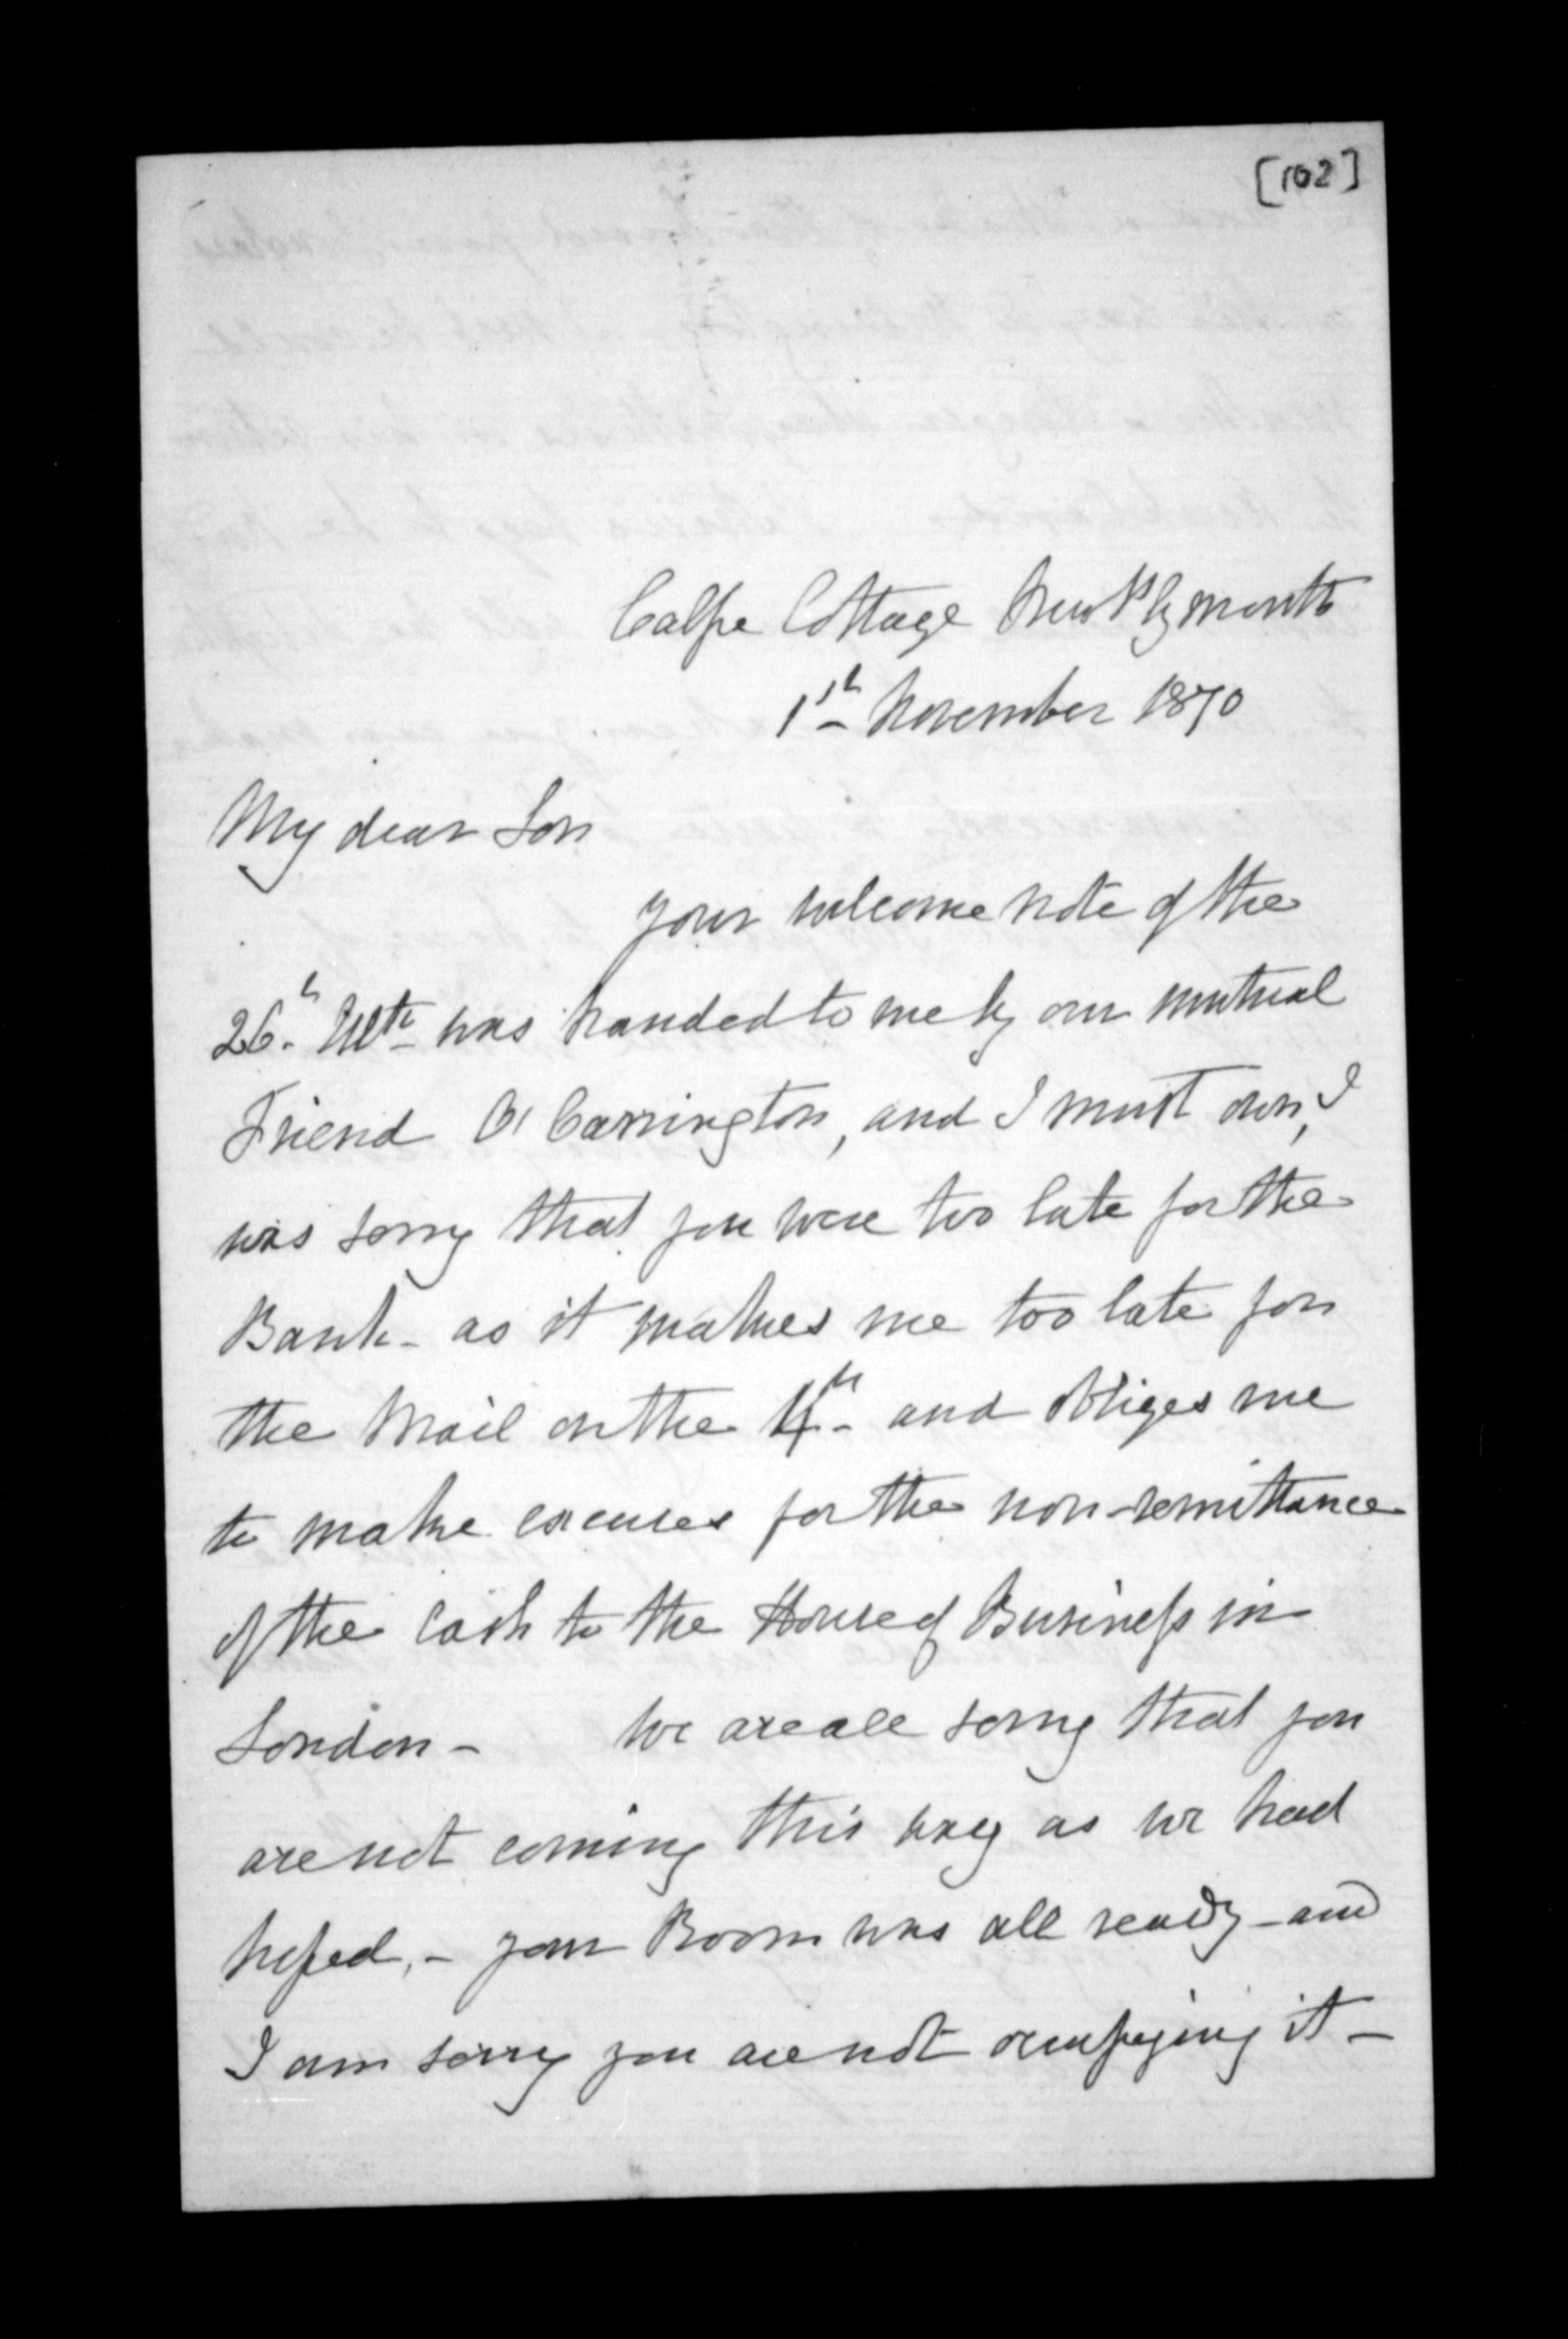 [102]
Calpe Cottage New Plymouth
1th November 1870
My dear Son
your welcome note of the
26.h Ulto was handed to me by our mutual
Friend O' Carrington, and I must own, I
was sorry that you were too late for the
Bank - as it makes me too late for
the Mail on the 4th - and obliges me
to make excuses for the non-remittance
of the Cash to the House of Business in
London - We are all sorry that you
are not coming this way as we had
hoped, - your Room was all ready - and
I am sorry you are not occupying it -